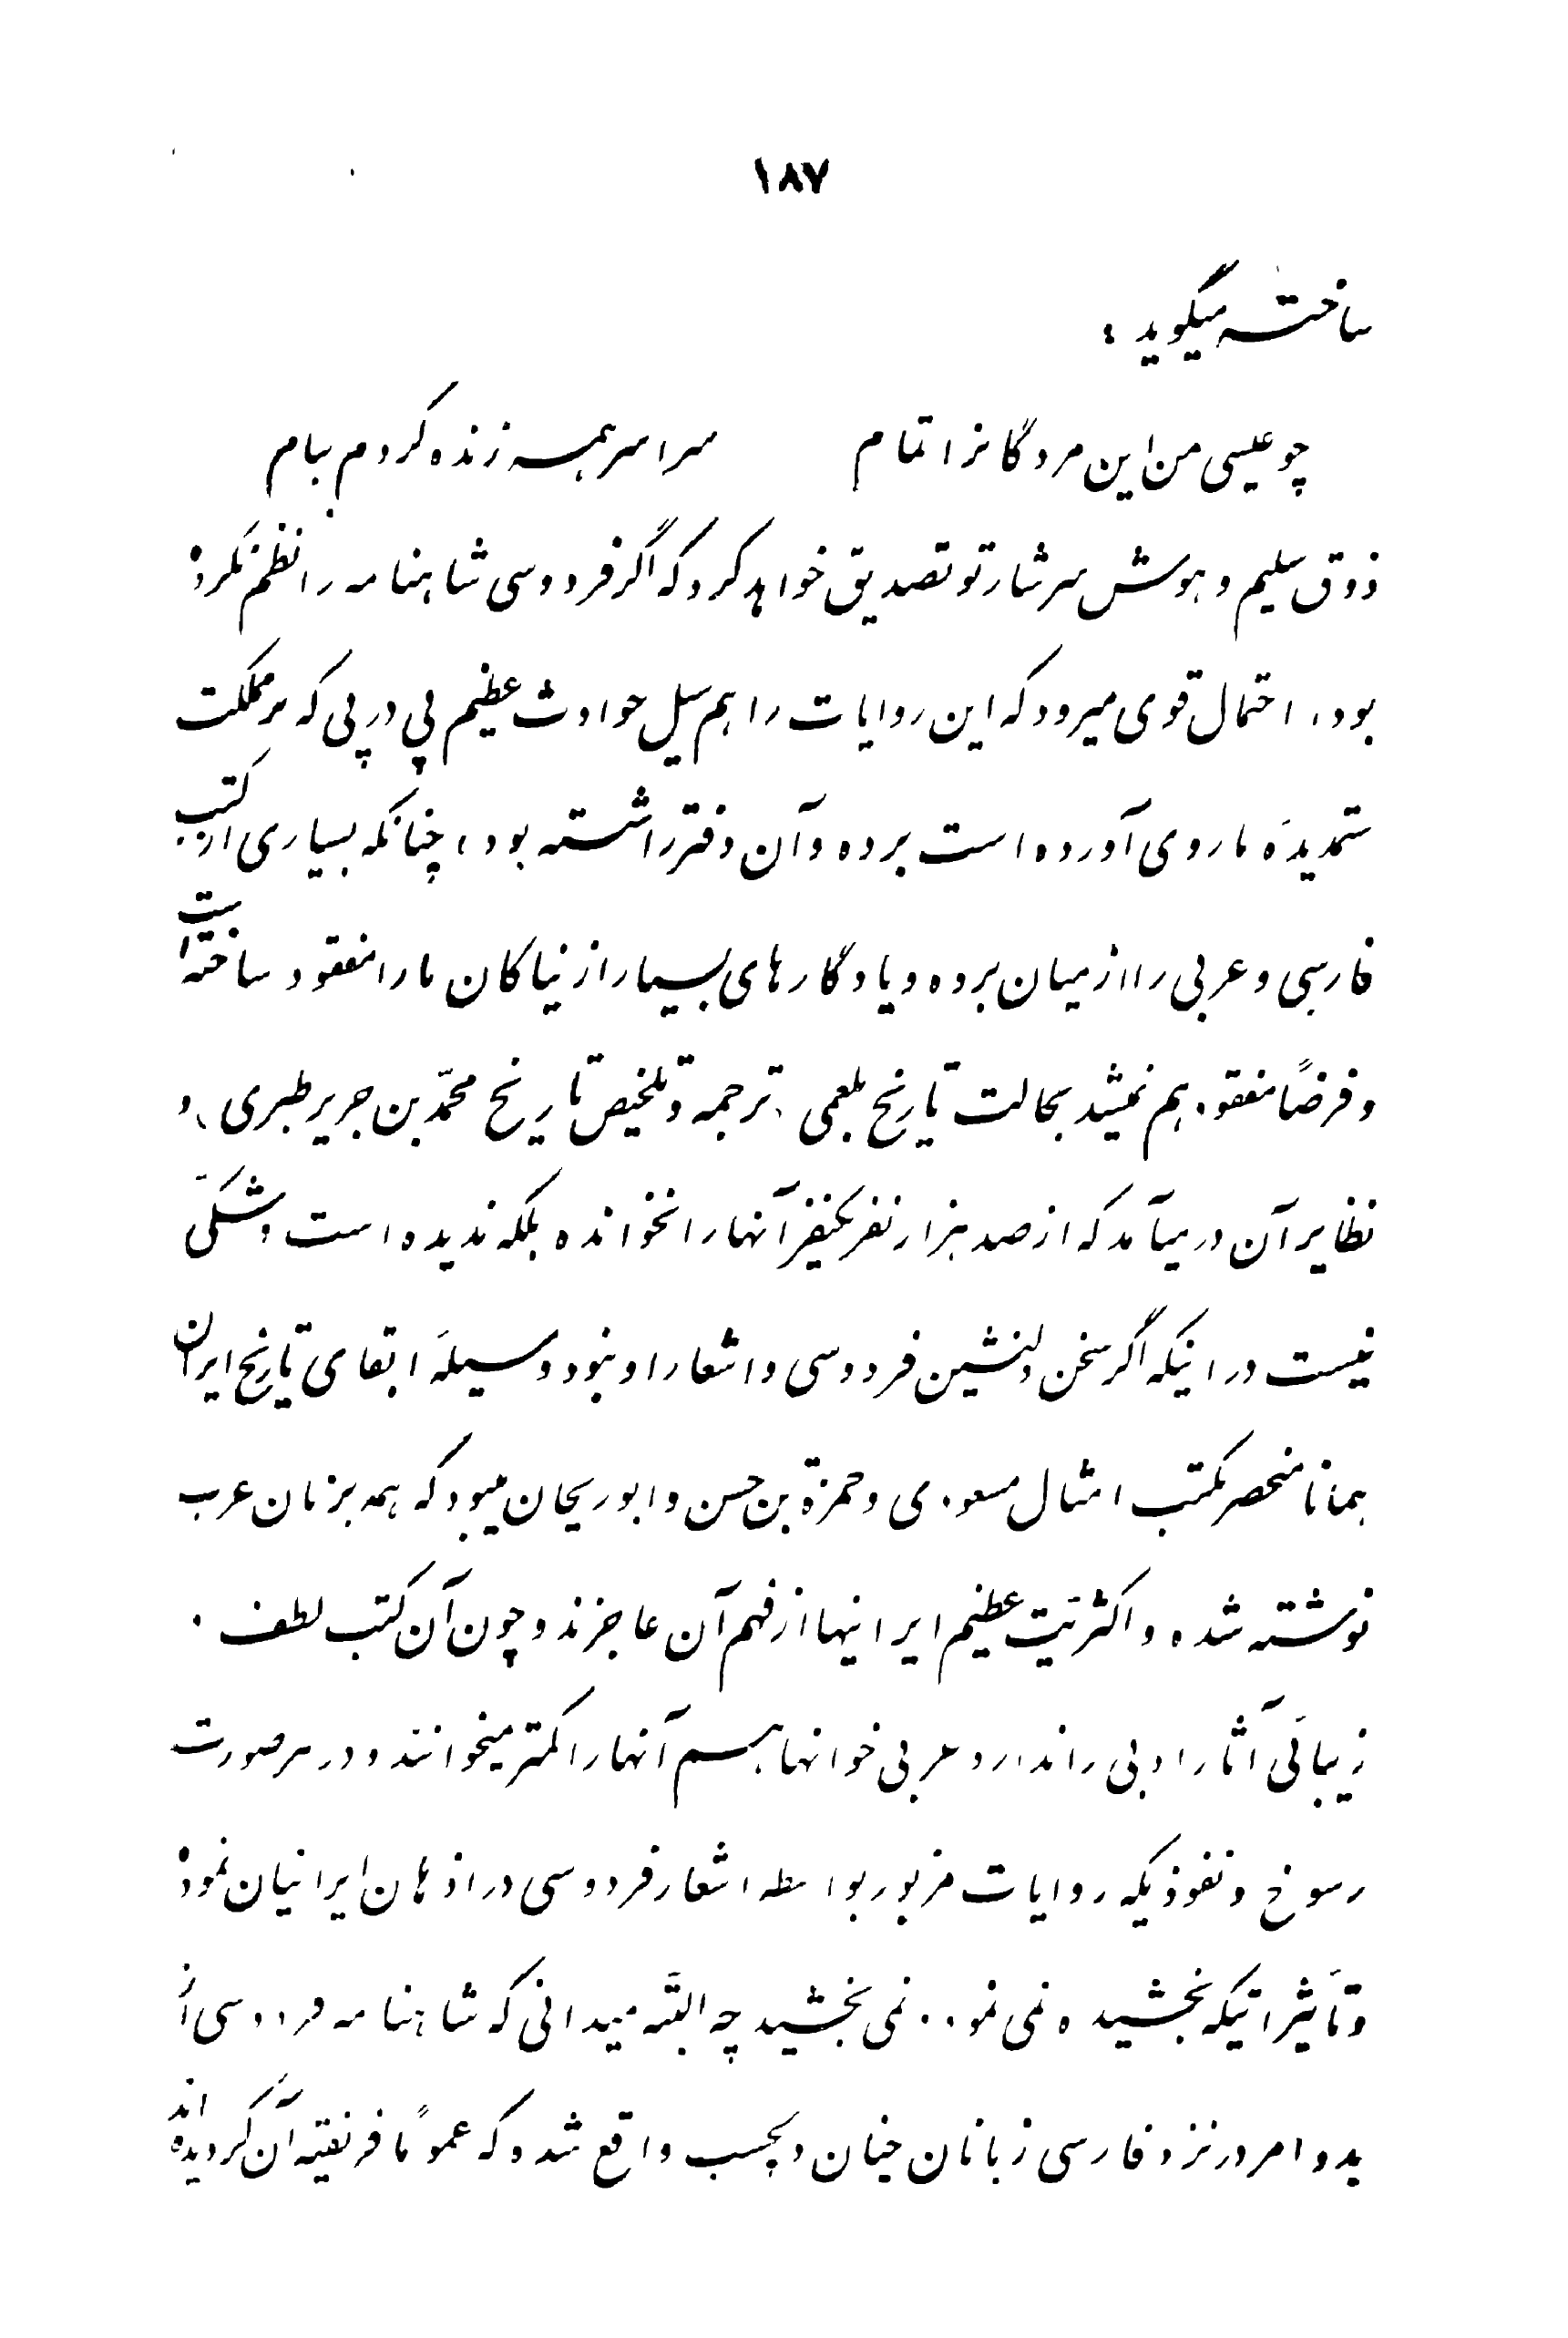 ۱۸۷
ساخته میگوید :
چو عیسی من این مردگانرا تمام سراسر همه زنده کردم بنام
ذوق سلیم و هوش سرشار تو تصدیق خواهد کرد که اگر فردوسی شاهنامه را نظم نکرده
بود، احتمال قوی میرود که این روایات را هم سیل حوادث عظیم پی در پی که بر مملکت
ستمدیدهٔ ما روی آورده است برده و آن دفتر را شسته بود، چنانکه بسیاری از کتب
فارسی و عربی را از میان برده و یادگارهای بسیار از نیاکان ما را مفقود ساخته است
و فرضاً مفقود هم نمیشد بحالت تاریخ بلعمی، ترجمه و تلخیص تاریخ محمّد بن جریر طبری، و
نظایر آن در میآمد که از صد هزار نفر یکنفر آنها را نخوانده بلکه ندیده است و شکّی
نیست در اینکه اگر سخن دلنشین فردوسی و اشعار او نبود وسیلهٔ ابقای تاریخ ایران
همانا منحصر بکتب امثال مسعودی و حمزة بن حسن و ابوریحان میبود که همه بزبان عرب
نوشته شده و اکثریّت عظیم ایرانیها از فهم آن عاجزند و چون آن کتب لطف و
زیبائی آثار ادبی را ندارد عربی خوانها هم آنها را کمتر میخوانند و در هر صورت
رسوخ و نفوذیکه روایات مزبور بواسطه اشعار فردوسی در اذهان ایرانیان نموده
و تأثیراتیکه بخشیده نمی نمود و نمی بخشید چه البتّه میدانی که شاهنامه فردوسی از
بدو امر در نزد فارسی زبانان چنان دلچسب واقع شد که عموماً فریفتهٔ آن گردیده اند